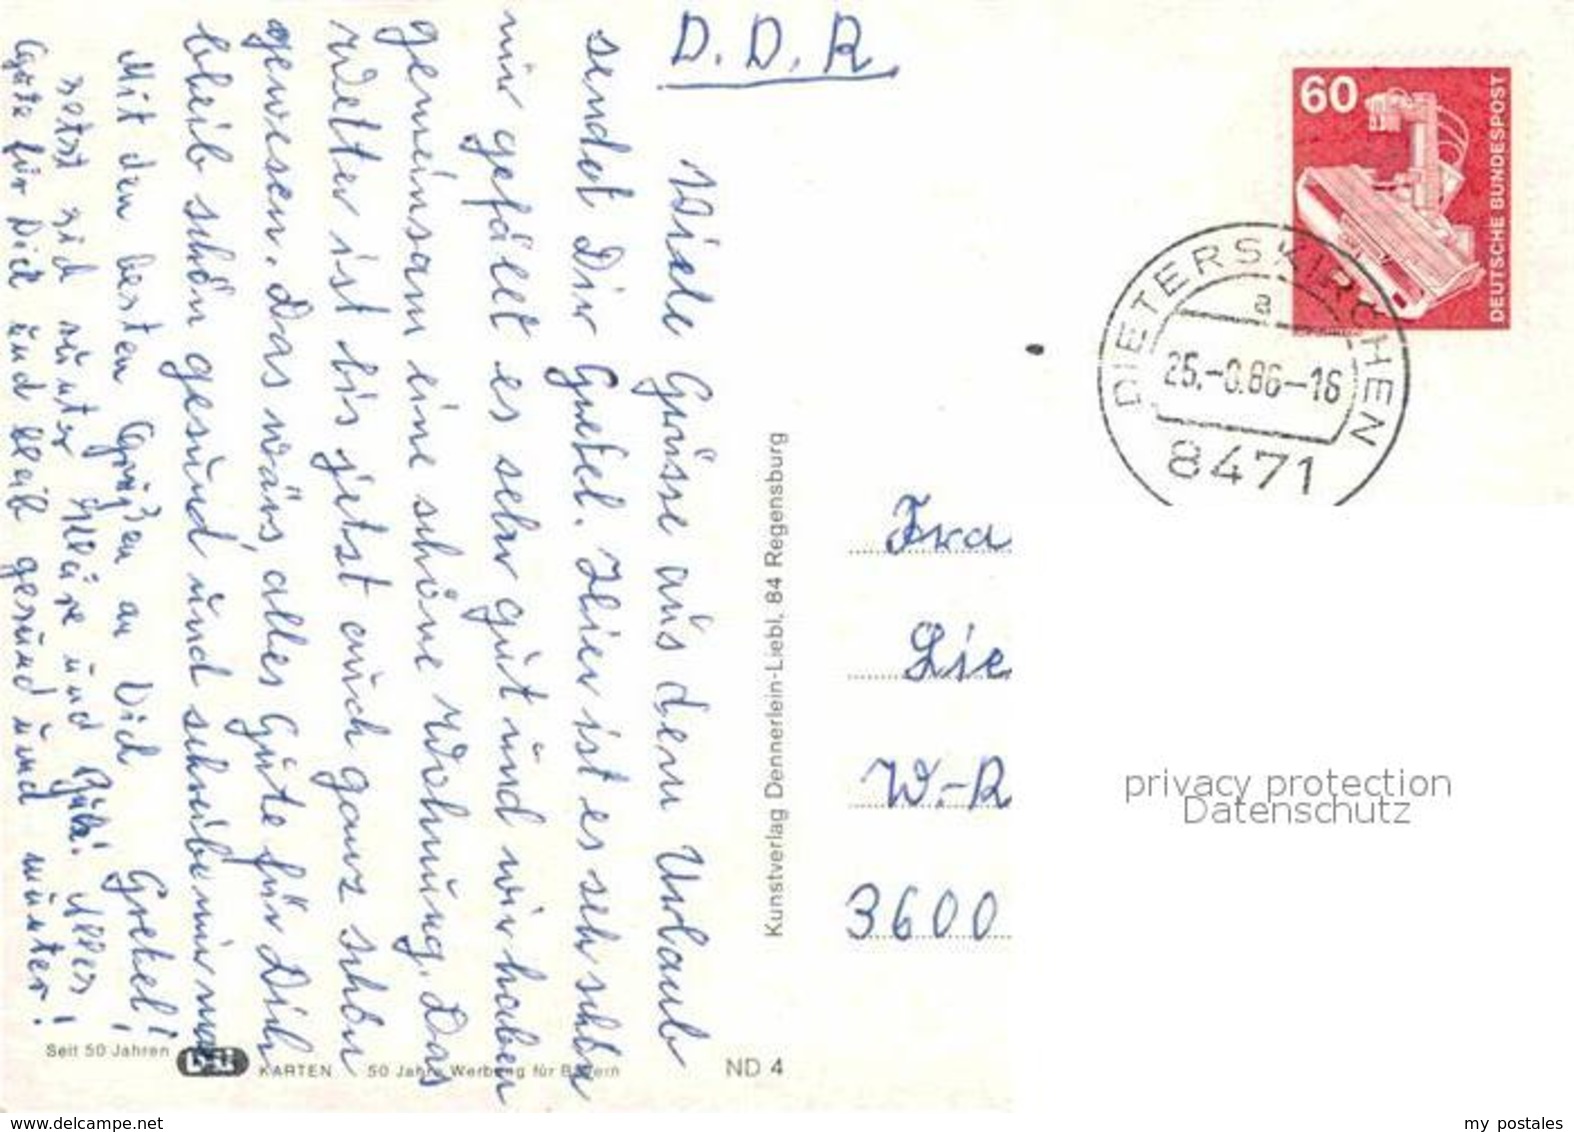 D. D. R.
Viele Grüsse aus dem Urlaub
sendet Dir Gretel. Hier ist es sehr schön
mir gefällt es sehr gut und wir haben
gemeinsam eine schöne Wohnung. Das
Wetter ist bis jetzt auch ganz schön
gewesen. Das wärs, alles Gute für Dich
bleib schön gesund und schreib mir mal
Mit den besten Grüßen an Dich Gretel!
setzt sich und Alles
Gute für Dich und bleib gesund und munter!
Kunstverlag Dennerlein-Liebl, 84 Regensburg
Seit 50 Jahren
KARTEN
50 Jahre Werbung für Bayern
ND 4
60
DEUTSCHE BUNDESPOST
DIETERSKIRCHEN
a
25.-8.86-16
8471
Fra
Lie
W.-R
3600
privacy protection
Datenschutz
www.delcampe.net
my postales